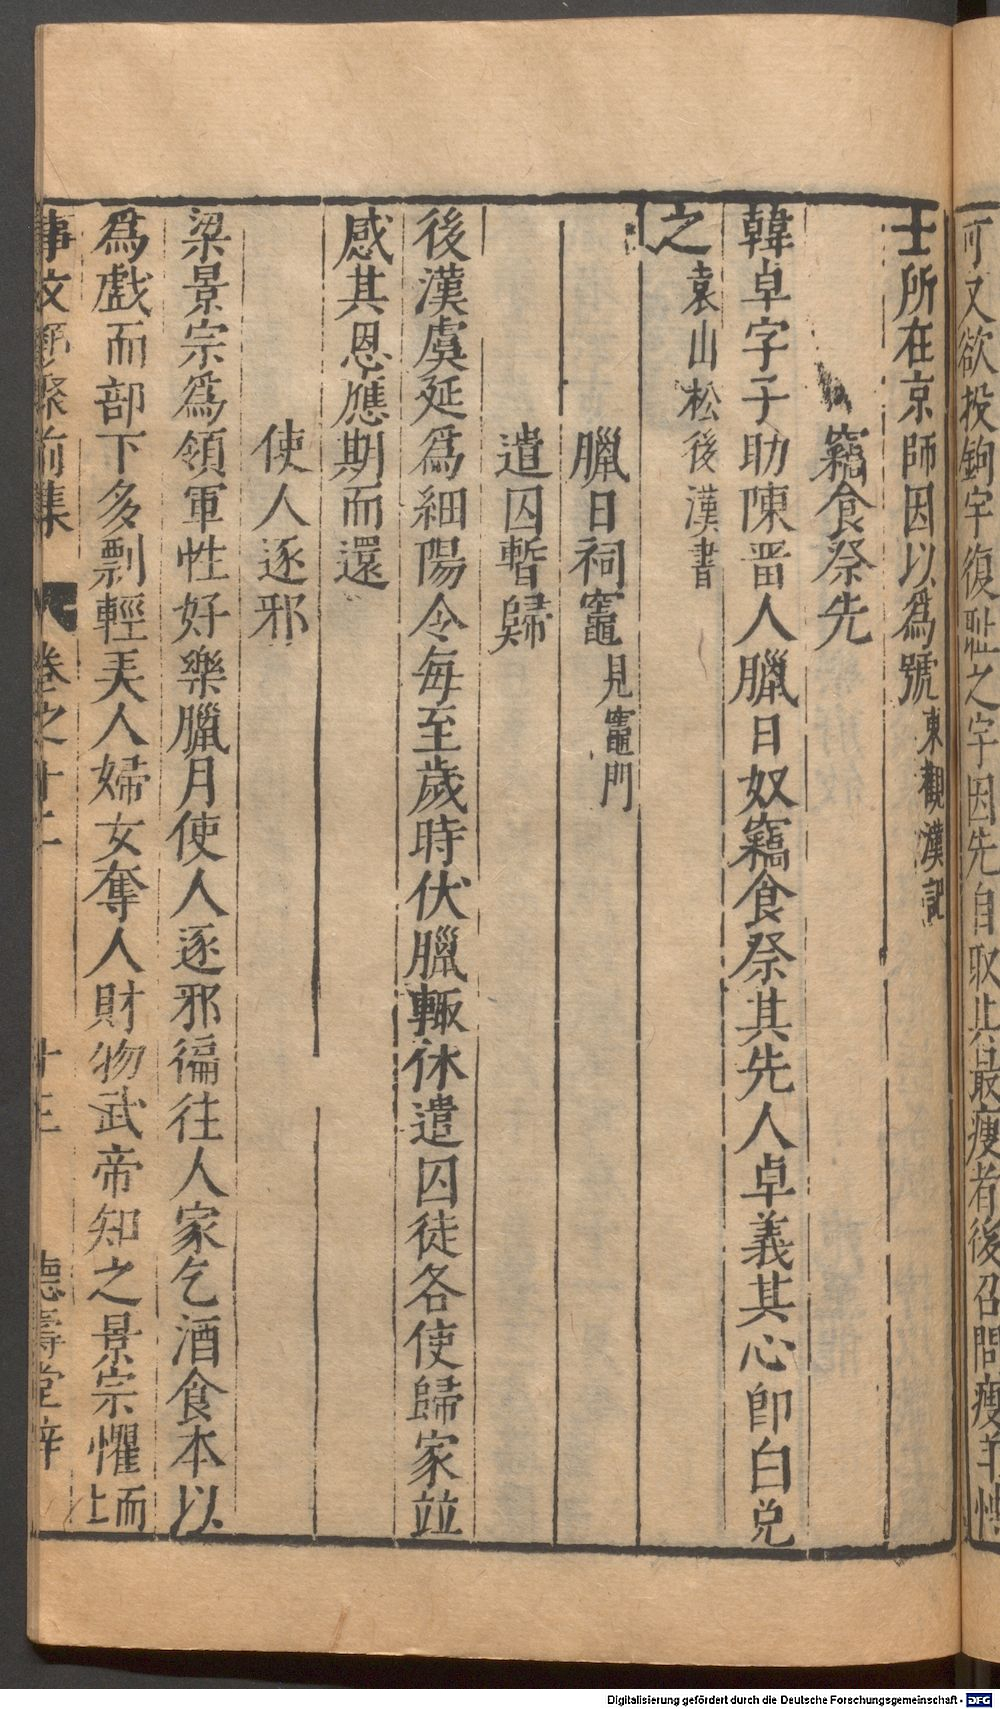 可又欲投鉤宇復恥之宇因先自取其最瘦者後召問瘦羊
士所在京師因以爲號東觀漢記
竊食祭先
韓卓字子助陳畱人臘日奴竊食祭其先人卓義其心卽白免
之袁山松後漢書
臘日祠竈見竈門
遣囚暫歸
後漢虞延爲細陽令每至歲時伏臘輙休遣囚徒各使歸家竝
感其恩應期而還
使人逐邪
梁景宗爲領軍性好樂臘月使人逐邪徧往人家乞酒食本以
爲戲而部下多剽輕美人婦女奪人財物武帝知之景宗懼而止
事文類聚前集 卷之十二 十三 德壽堂梓
Digitalisierung gefördert durch die Deutsche Forschungsgemeinschaft - DFG